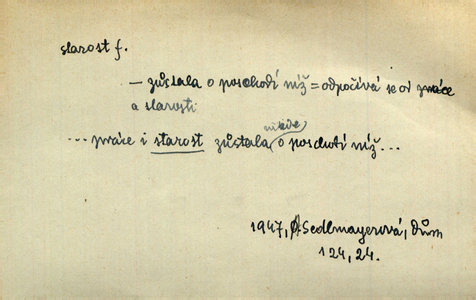 starost f.
— zůstala o poschodí níž = odpočívá se od práce
a starosti
... práce i starost zůstala o poschodí níž ...
1947, A Sedlmayerová, Dům
124, 24.